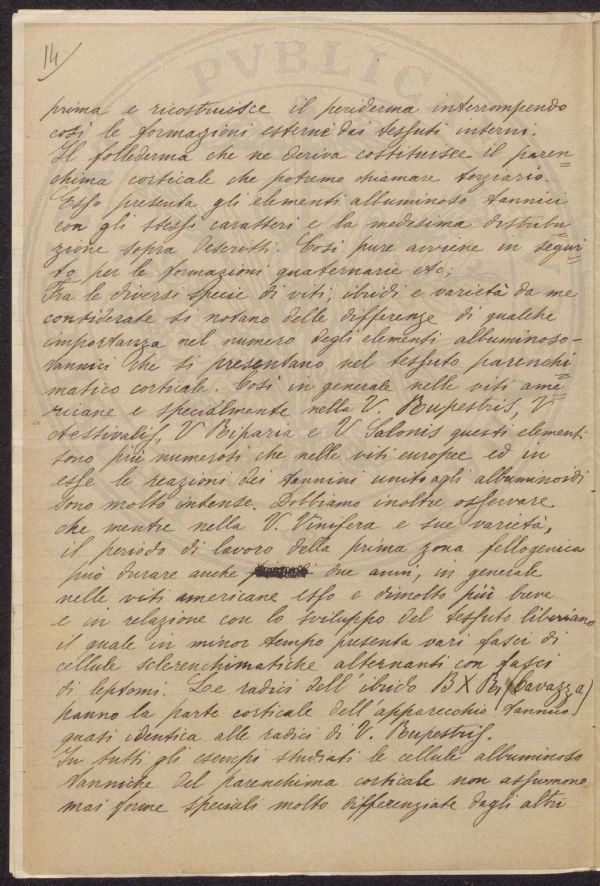 14
PVBLICA
prima e ricostruisce il periderma interrompendo
così le formazioni esterne dai tessuti interni.
Il felloderma che ne deriva costituisce il paren=
chima corticale che potremo chiamare terziario.
Esso presenta gli elementi albuminoso tannici
con gli stessi caratteri e la medesima distribu=
zione sopra descritti. Così pure avviene in segui=
to per le formazioni quaternarie etc;
Fra le diversi specie di viti, ibridi e varietà da me
considerate si notano delle differenze di qualche
importanza nel numero degli elementi albuminoso-
tannici che si presentano nel tessuto parenchi=
matico corticale. Così in generale nelle viti ame=
ricane e specialmente nella V. Rupestris, V
Aestivalis, V Riparia e V Solonis questi elementi
sono più numerosi che nelle viti europee ed in
esse le reazioni dei tannini uniti agli albuminoidi
sono molto intense. Dobbiamo inoltre osservare
che mentre nella V. Vinifera e sue varietà,
il periodo di lavoro della prima zona fellogenica
può durare anche due anni, in generale
nelle viti americane esso e dimolto più breve
e in relazione con lo sviluppo del tessuto liberiano
il quale in minor tempo presenta vari fasci di
cellule sclerenchimatiche alternanti con fasci
di leptomi. Le radici dell'ibrido B X (Cavazza)
hanno la parte corticale dell'apparecchio tannico
quasi identica alle radici di V. Rupestris.
In tutti gli esempi studiati le cellule albuminoso
tanniche del parenchima corticale non assumono
mai forme speciali molto differenziate dagli altri